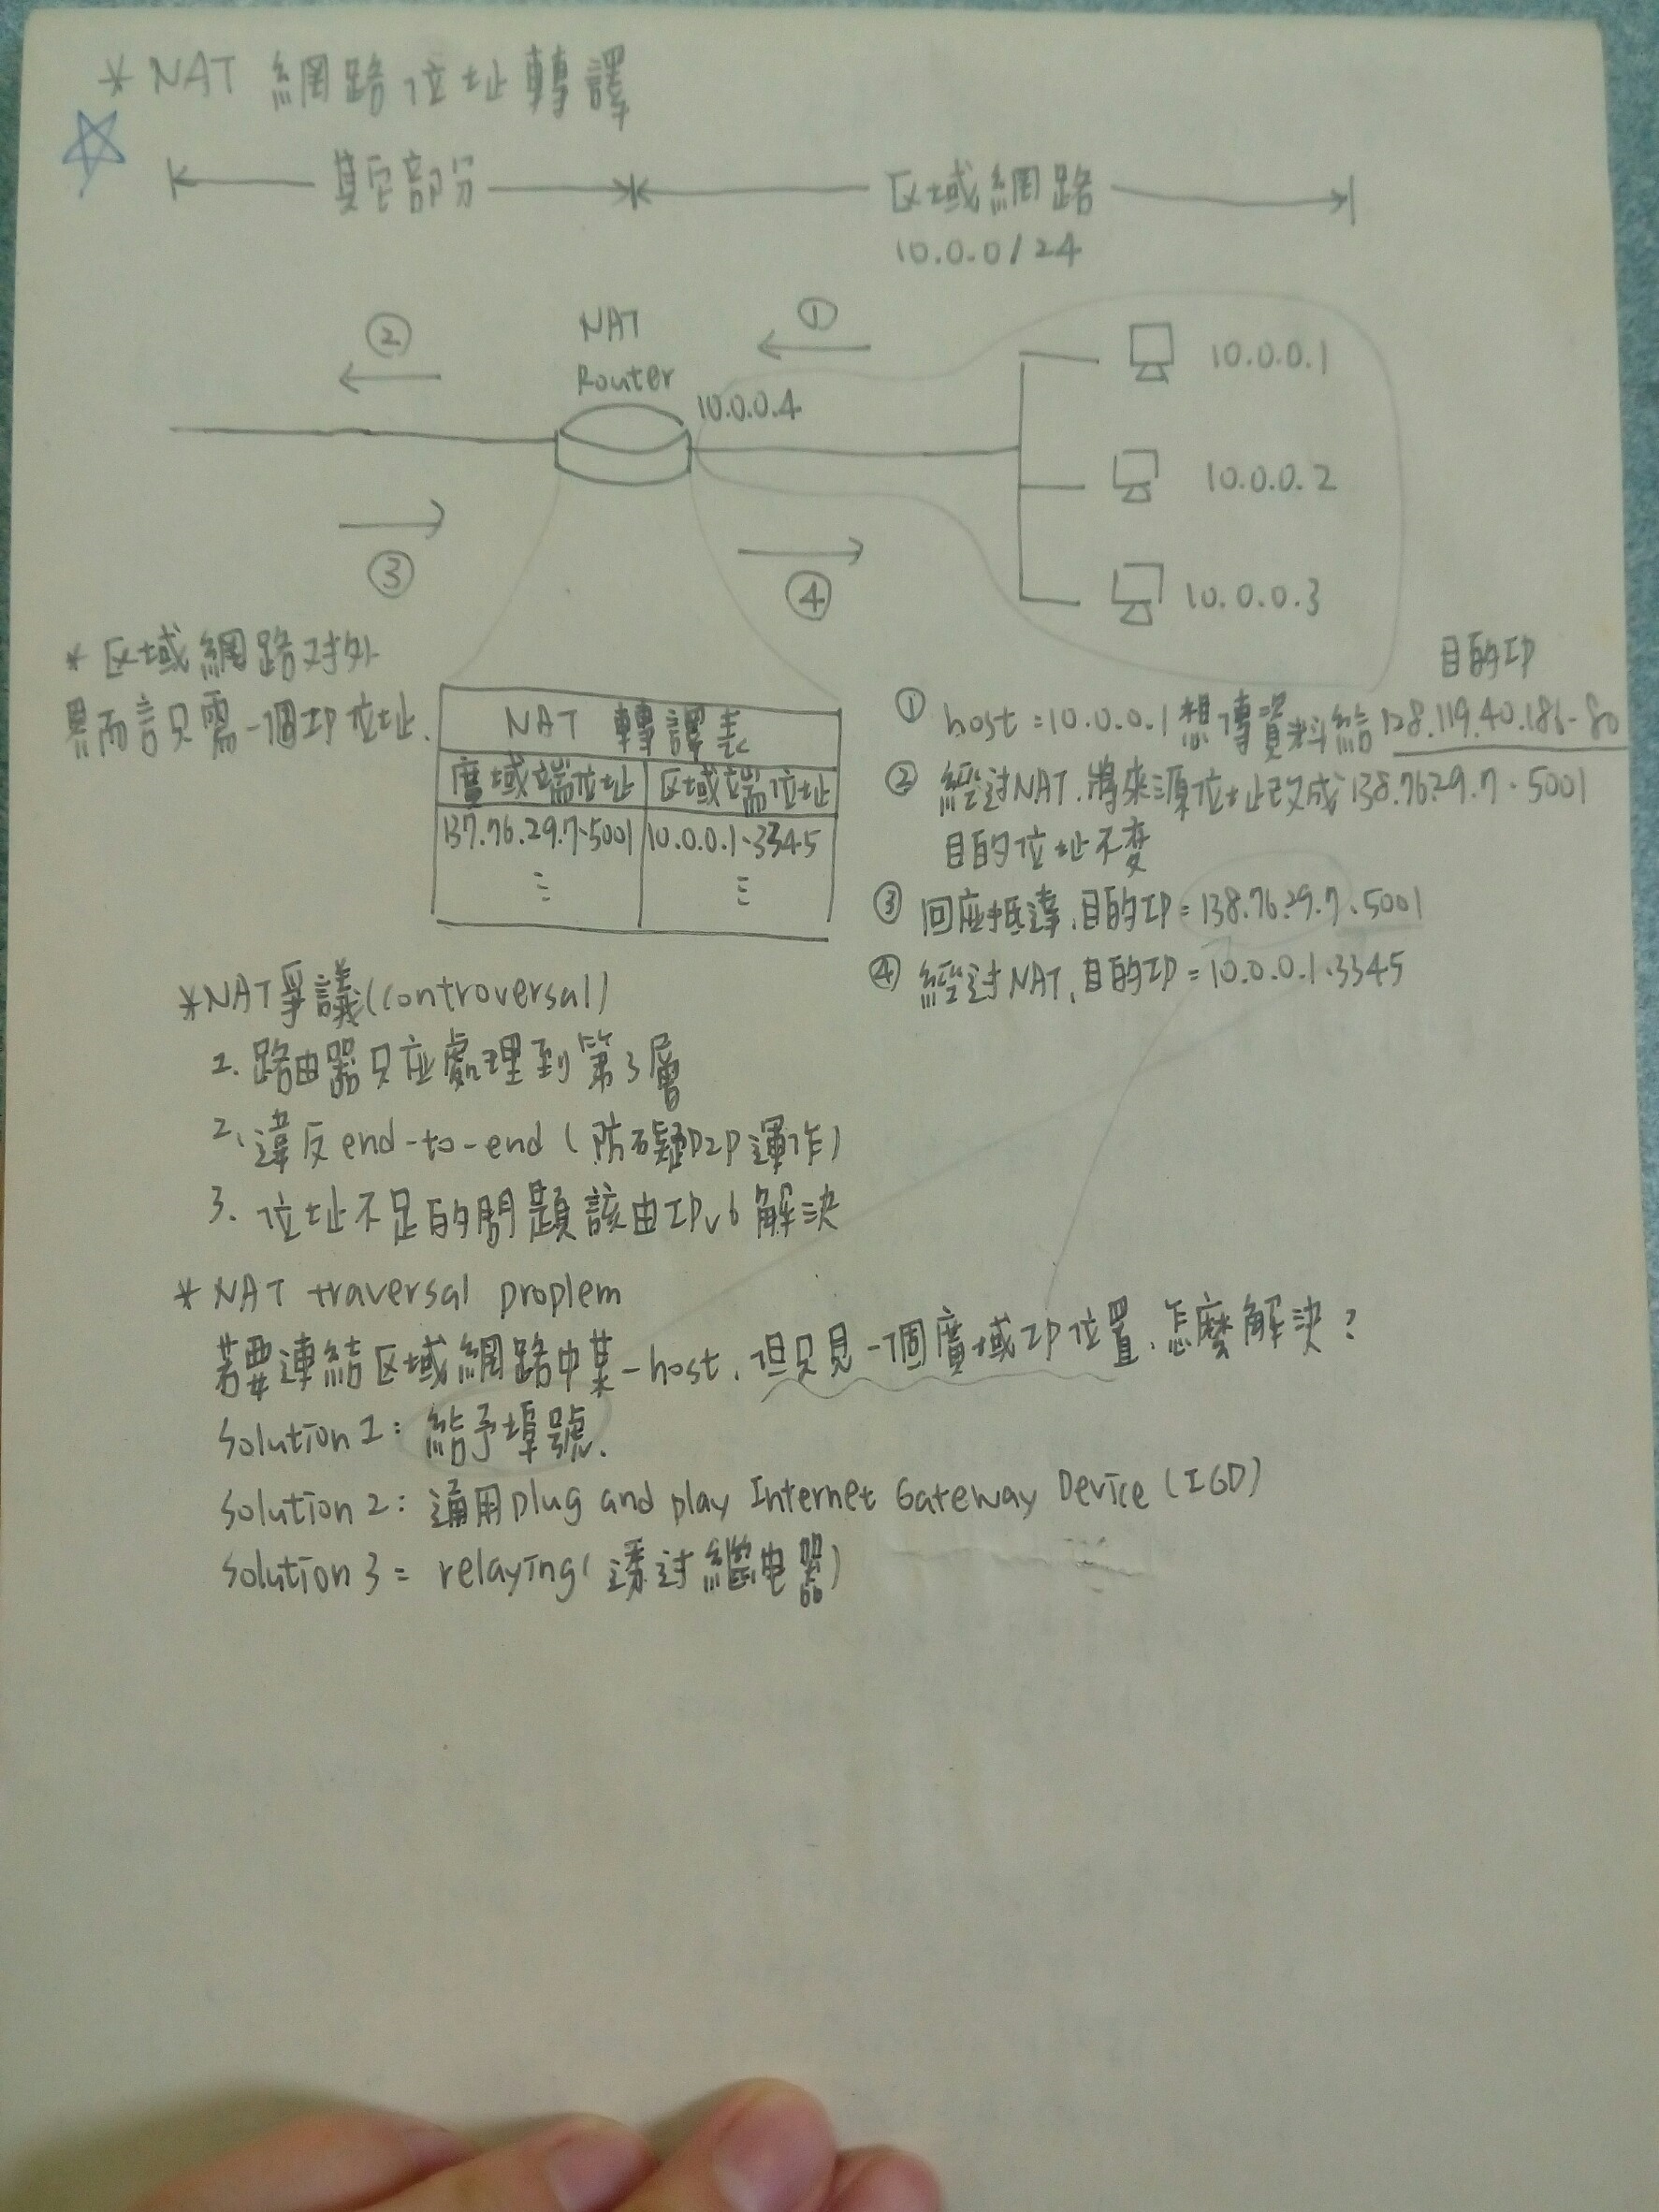 * NAT 網路位址轉譯
其它部分
区域網路
10.0.0/24
②
NAT
Router
①
10.0.0.4
10.0.0.1
10.0.0.2
10.0.0.3
③
④
* 区域網路对外
界而言只需一個IP位址.
NAT 轉譯表
廣域端位址 区域端位址
137.76.29.7.5001 10.0.0.1.3345
⋮ ⋮
目的IP
① host=10.0.0.1想傳資料給128.119.40.186-80
② 經过NAT.將來源位址改成138.76.29.7.5001
目的位址不变
③ 回应抵達.目的IP=138.76.29.7.5001
④ 經过NAT.目的IP=10.0.0.1.3345
*NAT爭議(controversal)
1. 路由器只应處理到第3層
2. 違反end-to-end (防礙P2P運作)
3. 位址不足的問題該由IPv6解決
* NAT traversal proplem
若要連結区域網路中某一host.但只見一個廣域IP位置.怎麼解決?
Solution 1: 給予埠號.
Solution 2: 通用plug and play Internet Gateway Device (IGD)
Solution 3= relaying(透过繼电器)